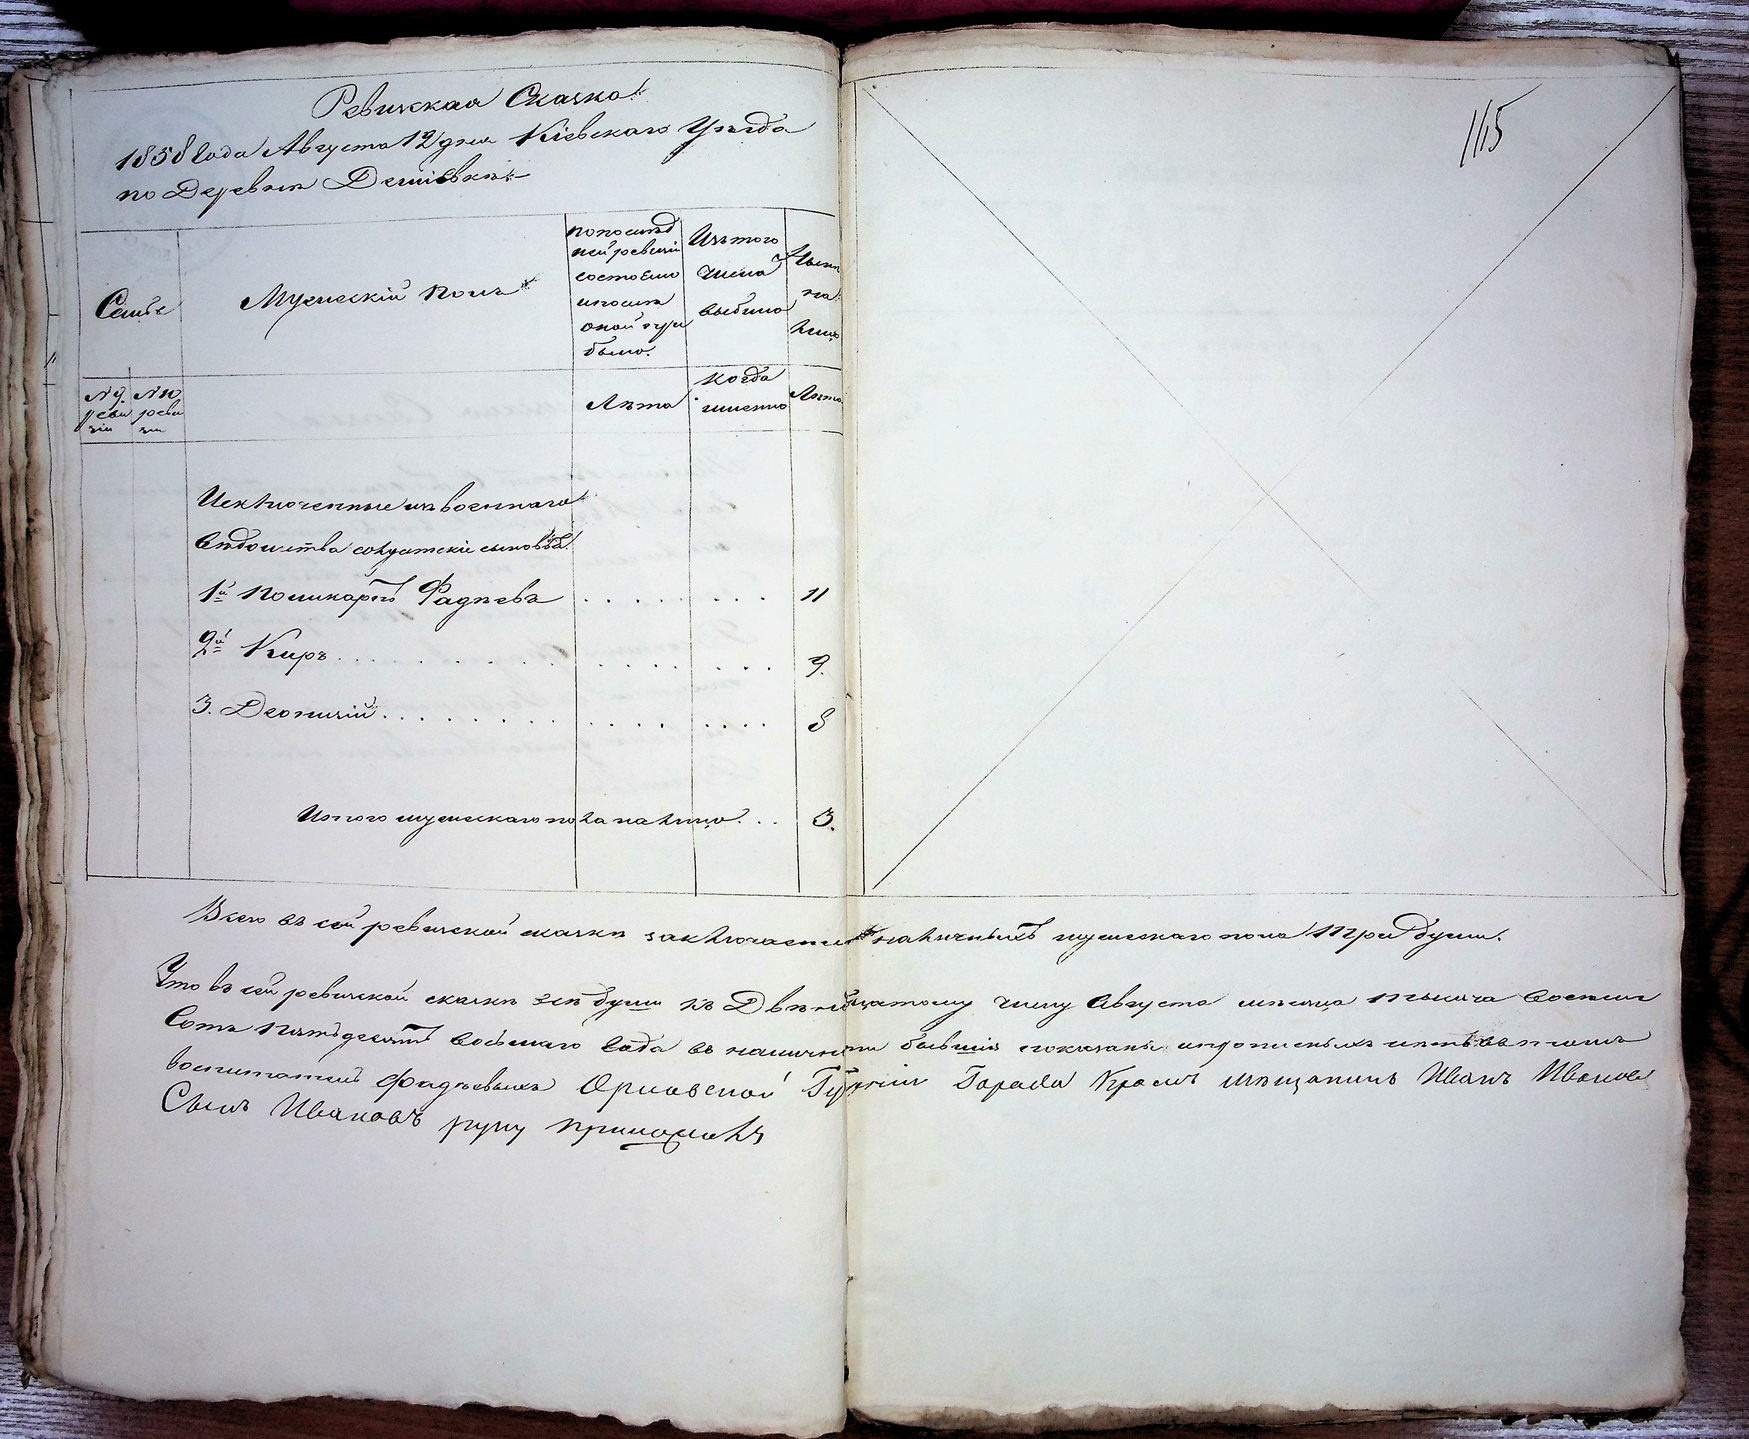 Ревизская Сказка
1858 Года Августа 12 дня Кіевскаго Уѣзда
по Деревни Деміевки
115
Семьи
Мужескій полъ
по послѣд
ней ревизіи
состояло
и послѣ
оной
было.
Изъ того
числа
выбыло
Нынѣ
на
лицо
№ 9. ревизіи
№ 10 ревизіи
Лѣта
когда именно
Лѣта
Исключенные изъ военнаго
вѣдомства солдатскіе сыновья
1й Поликарпъ Фадѣевъ . . . 11
2й Киръ . . . 9.
3. Деонизій . . . 8
Итого мужескаго пола на лицо . . . 3.
Всего въ сей ревизской сказкѣ заключается наличныхъ мужескаго пола три души.
Что въ сей ревизской сказкѣ всѣ души къ Двѣнадцатому числу Августа мѣсяца тысяча восемь
Сотъ пятьдесятъ восьмаго Года въ наличности бывшія показаны и прописныхъ нѣтъ въ томъ
воспитатель Фадѣевыхъ Орловской Губерніи Города Кромъ мѣщанинъ Иванъ Иванов
Сынъ Ивановъ руку приложилъ